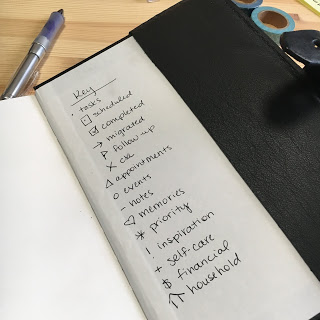 Key
· tasks
☐ scheduled
☑ completed
→ migrated
P follow up
X
△ appointments
○ events
- notes
♡ memories
* priority
! inspiration
+ self-care
$ financial
⇑ household